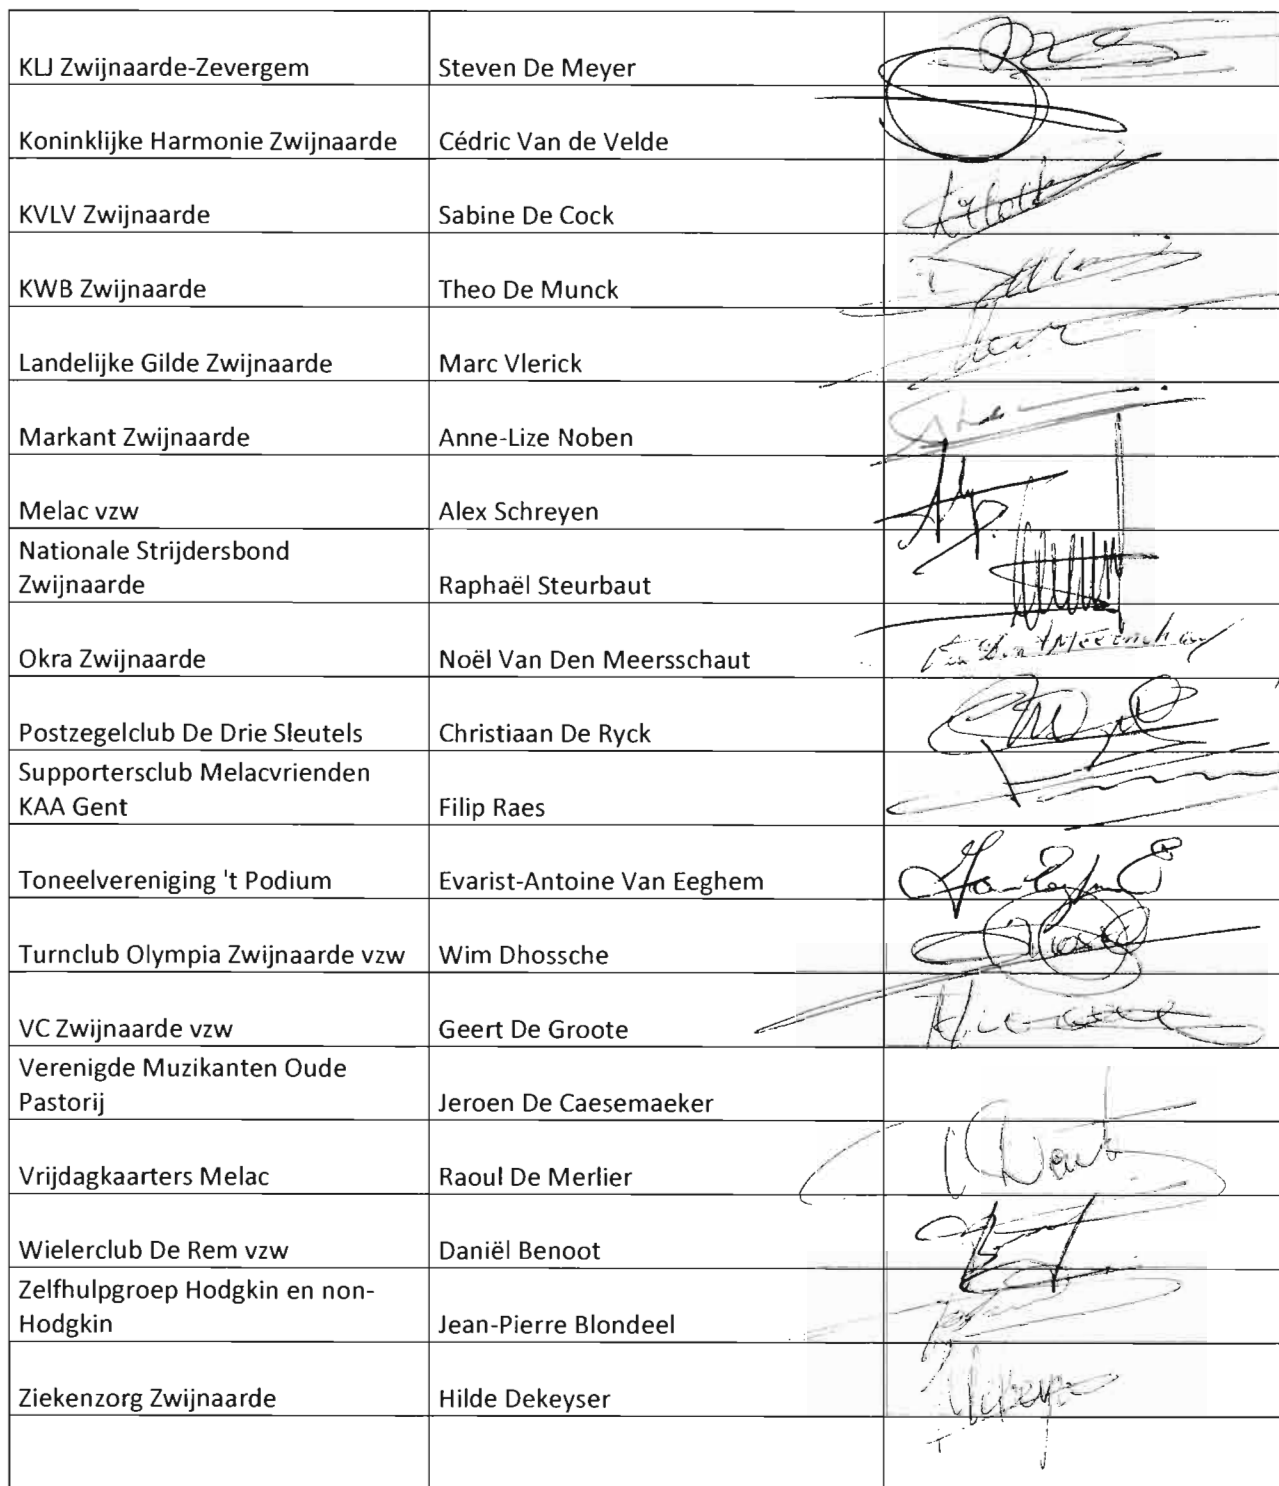 KLJ Zwijnaarde-Zevergem Steven De Meyer
Koninklijke Harmonie Zwijnaarde Cédric Van de Velde
KVLV Zwijnaarde Sabine De Cock
KWB Zwijnaarde Theo De Munck
Landelijke Gilde Zwijnaarde Marc Vlerick
Markant Zwijnaarde Anne-Lize Noben
Melac vzw Alex Schreyen
Nationale Strijdersbond
Zwijnaarde Raphaël Steurbaut
Okra Zwijnaarde Noël Van Den Meersschaut
Postzegelclub De Drie Sleutels Christiaan De Ryck
Supportersclub Melacvrienden
KAA Gent Filip Raes
Toneelvereniging 't Podium Evarist-Antoine Van Eeghem
Turnclub Olympia Zwijnaarde vzw Wim Dhossche
VC Zwijnaarde vzw Geert De Groote
Verenigde Muzikanten Oude
Pastorij Jeroen De Caesemaeker
Vrijdagkaarters Melac Raoul De Merlier
Wielerclub De Rem vzw Daniël Benoot
Zelfhulpgroep Hodgkin en non-
Hodgkin Jean-Pierre Blondeel
Ziekenzorg Zwijnaarde Hilde Dekeyser